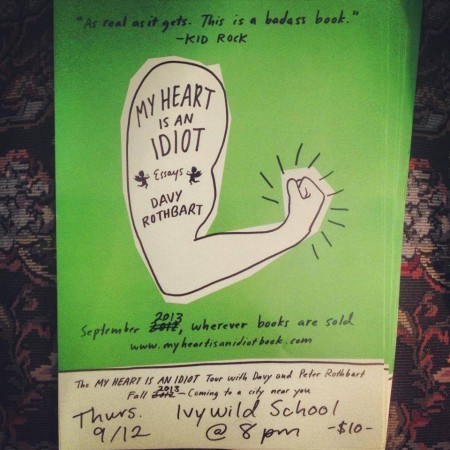 "As real as it gets. This is a badass book."
-KID ROCK
MY HEART
IS AN
IDIOT
Essays
DAVY
ROTHBART
2013
September 2012, wherever books are sold
www.myheartisanidiotbook.com
The MY HEART IS AN IDIOT Tour with Davy and Peter Rothbart
2013
Fall 2012 - Coming to a city near you
Thurs. Ivywild School
9/12 @ 8 pm -$10-